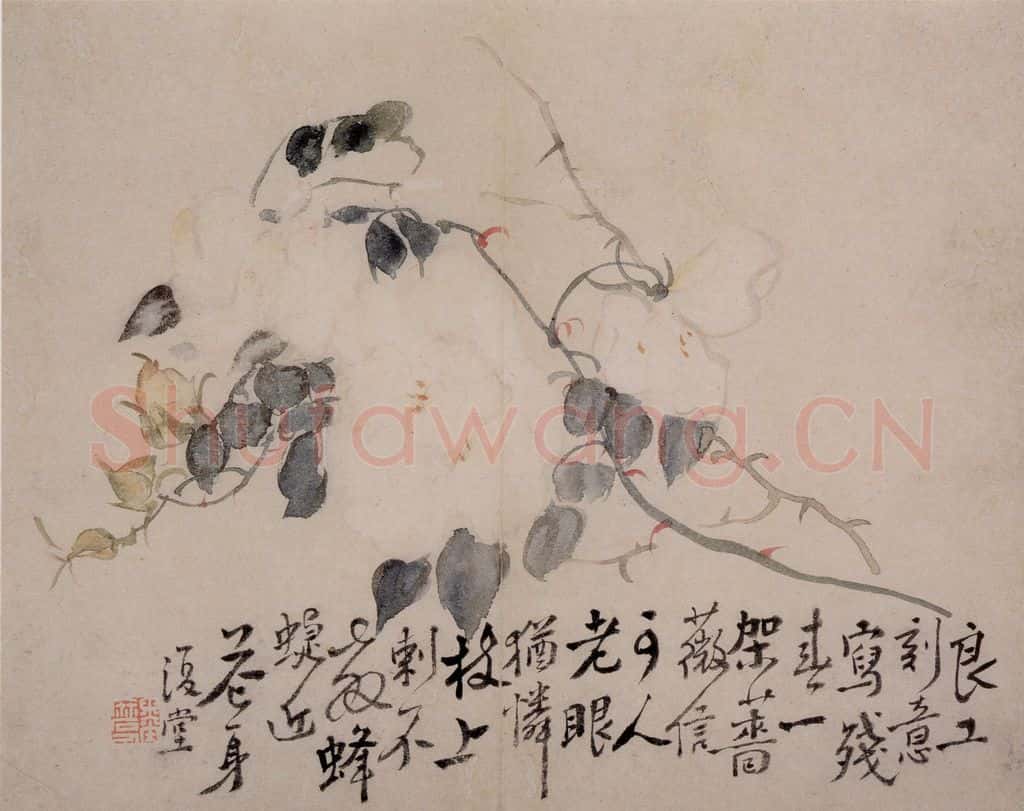 良工
刻意
寫殘
春一
架薔
薇信
可人
老眼
猶憐
枝上
刺不
教蜂
蝶近
花身
復堂
Shufawang.CN